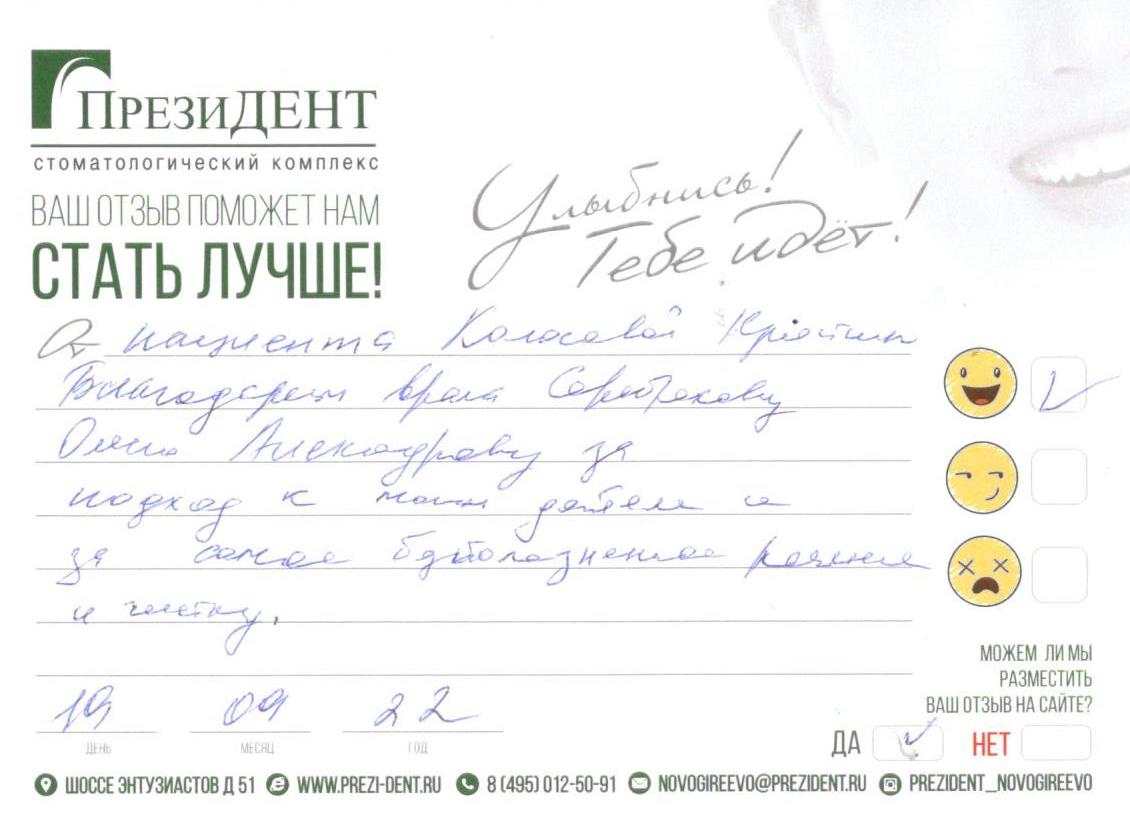 ПрезиДЕНТ
стоматологический комплекс
ВАШ ОТЗЫВ ПОМОЖЕТ НАМ
СТАТЬ ЛУЧШЕ!
Улыбнись!
Тебе идёт!
От пациента Колосовой
Благодарим врача
за
подход к моим детям и
за самое безболезненное лечение
и чистку.
19 09 22
ДЕНЬ МЕСЯЦ ГОД
МОЖЕМ ЛИ МЫ
РАЗМЕСТИТЬ
ВАШ ОТЗЫВ НА САЙТЕ?
ДА НЕТ
ШОССЕ ЭНТУЗИАСТОВ Д 51 WWW.PREZI-DENT.RU 8 (495) 012-50-91 NOVOGIREEVO@PREZIDENT.RU PREZIDENT_NOVOGIREEVO